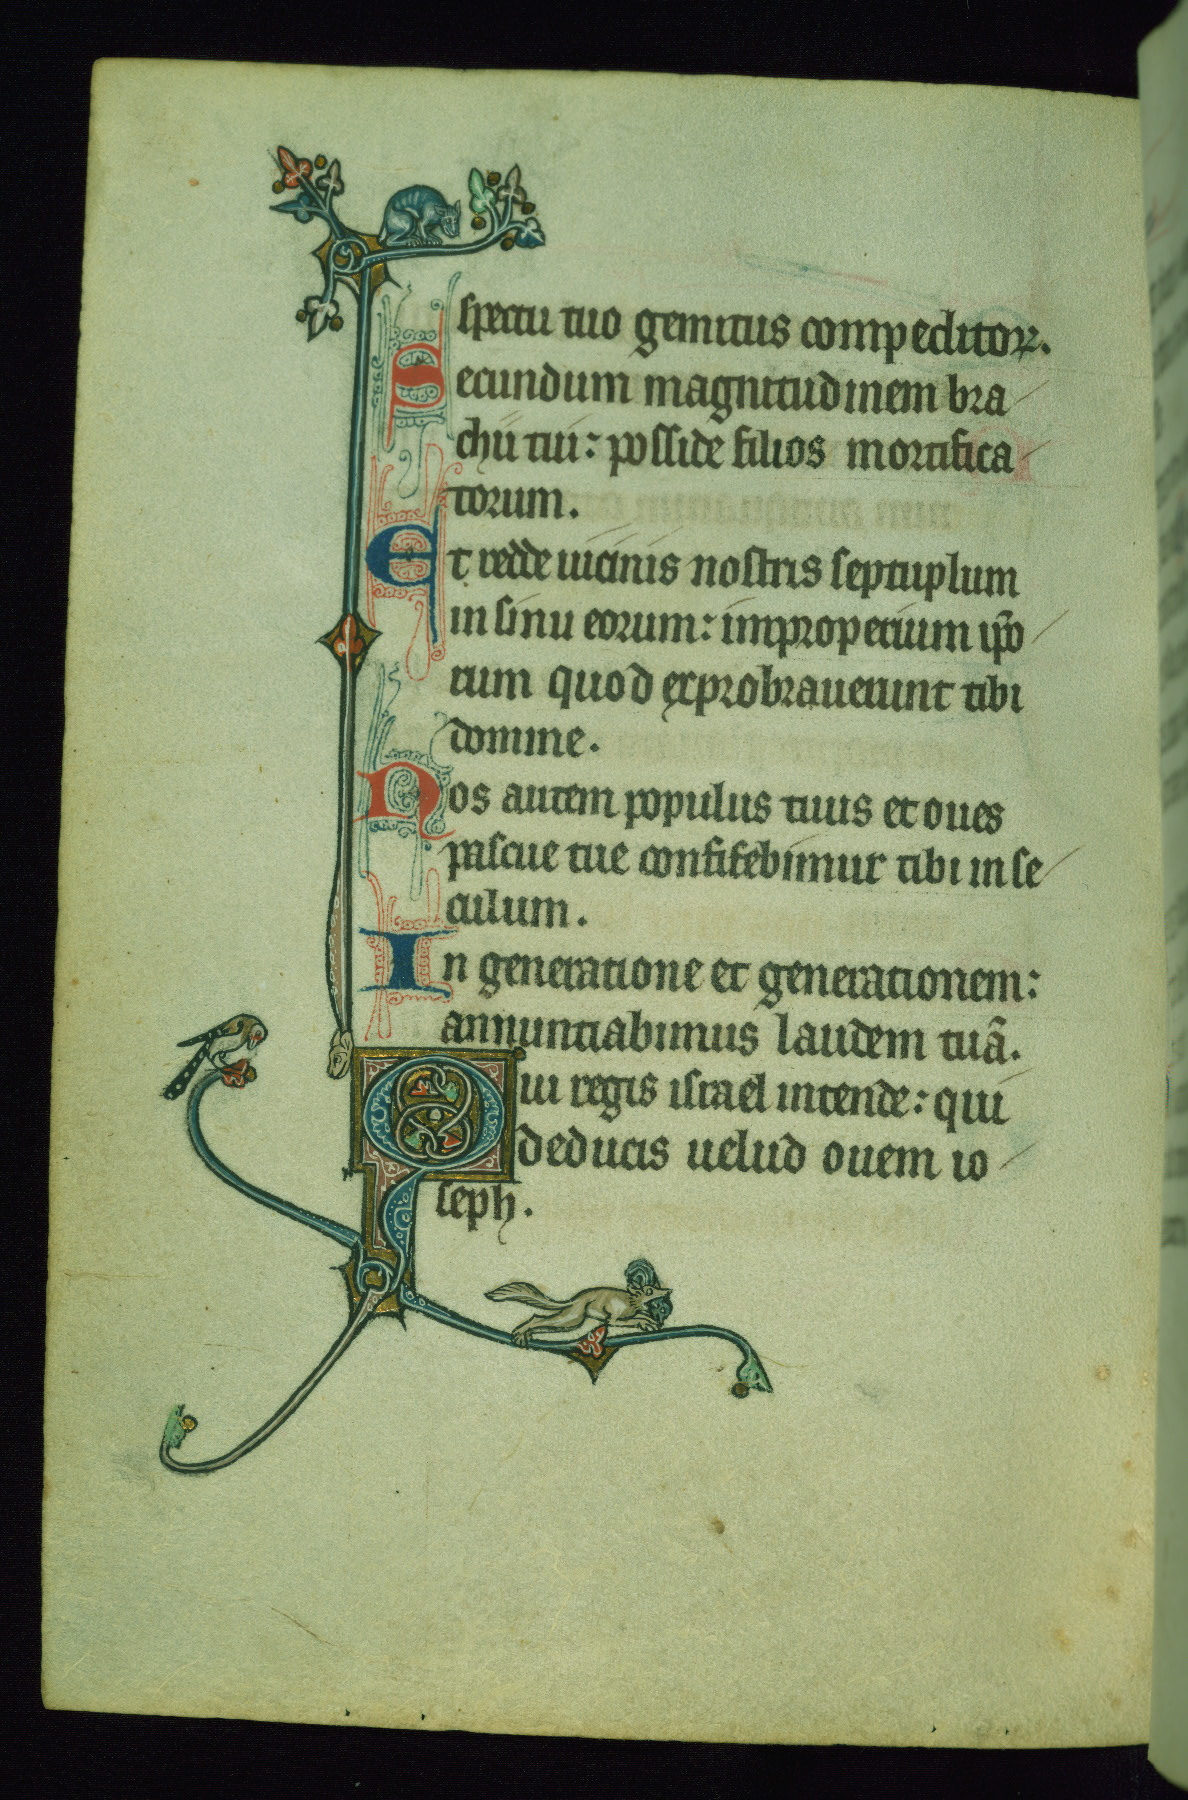 spectu tuo gemitus compeditoꝝ.
Secundum magnitudinem bra
chii tui: posside filios mortifica
torum.
Et redde uicinis nostris septuplum
in sinu eorum: improperium ip̄o
rum quod exprobrauerunt tibi
domine.
Nos autem populus tuus et oues
pascue tue confitebimur tibi in se
culum.
In generatione et generationem:
annuntiabimus laudem tuā.
Qui regis israel intende: qui
deducis uelud ouem io
seph.